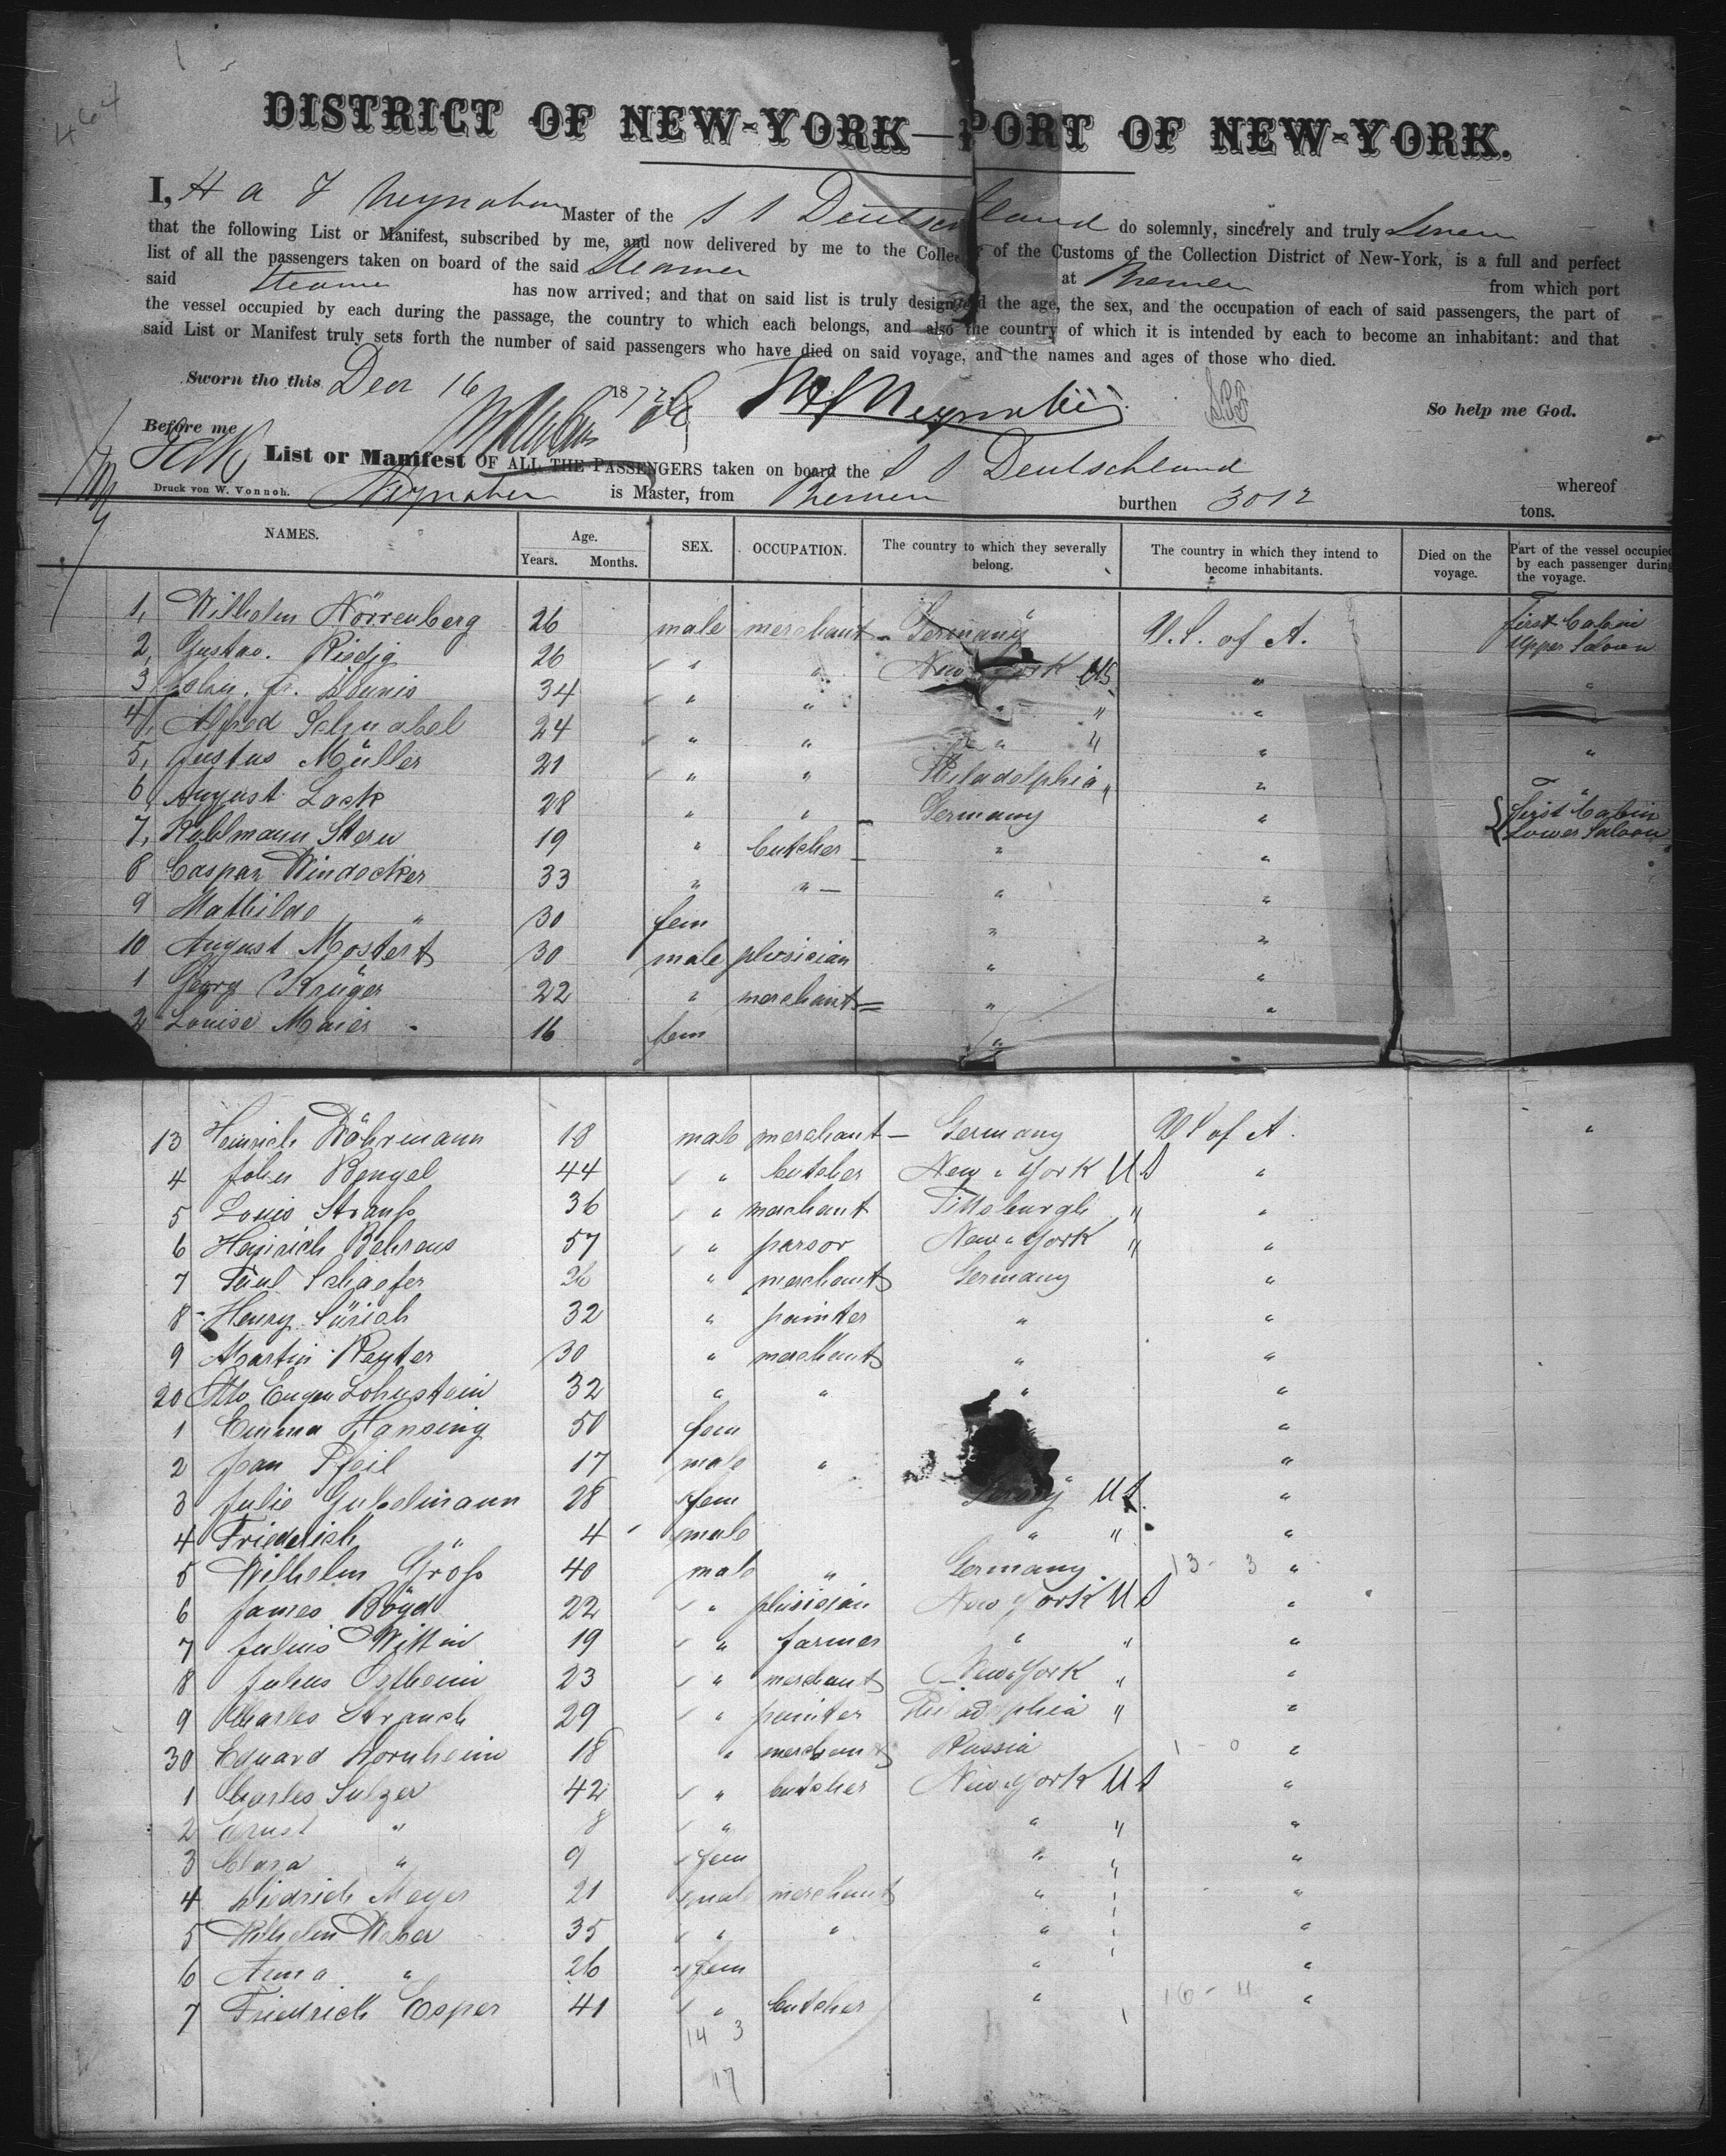 464
DISTRICT OF NEW-YORK—PORT OF NEW-YORK.
I, H A F Neynaber Master of the S S Deutschland do solemnly, sincerely and truly
that the following List or Manifest, subscribed by me, and now delivered by me to the Collector of the Customs of the Collection District of New-York, is a full and perfect
list of all the passengers taken on board of the said Steamer at Bremen from which port
said Steamer has now arrived; and that on said list is truly designated the age, the sex, and the occupation of each of said passengers, the part of
the vessel occupied by each during the passage, the country to which each belongs, and also the country of which it is intended by each to become an inhabitant: and that
said List or Manifest truly sets forth the number of said passengers who have died on said voyage, and the names and ages of those who died.
Sworn tho this Decr 16 187 Neynaber So help me God.
Before me
List or Manifest OF ALL THE PASSENGERS taken on board the S S Deutschland whereof
Druck von W. Vonnoh. Neynaber is Master, from Bremen burthen 3012 tons.
NAMES. Age. Years. Months. SEX. OCCUPATION. The country to which they severally belong. The country in which they intend to become inhabitants. Died on the voyage. Part of the vessel occupied by each passenger during the voyage.
1, Wilhelm Nörrenberg 26 male merchant - Germany U.S. of A. First Cabin Upper Saloon
2, Gustav. Risdjg 26 " " New York US " "
3 John. Fr. Dennis 34 " " " " "
4, Alfred Schnabel 24 " " " " " "
5, Justus Müller 21 " " Philadelphia " "
6, August Lask 28 " " Germany " First Cabin Lower Saloon
7, Kuhlmann Stern 19 " butcher " "
8 Caspar Windecker 33 " " " "
9 Mathilde " 30 fem " "
10 August Mostert 30 male phisician " "
1 Georg Krüger 22 " merchant " "
2 Louise Maier 16 fem "
13 Heinrich Wöhrmann 18 male merchant - Germany U S of A. "
4 John Bengel 44 " butcher New York US "
5 Louis Strauß 36 " merchant Pittsburgh " "
6 Heinrich Behrens 57 " parsor New York " "
7 Paul Schaefer 26 " merchant Germany "
8 Henry Sürich 32 " painter " "
9 Martin Reyter 30 " merchant " "
20 Otto Eugen Lohnstein 32 " " " "
1 Emma Hansing 50 fem "
2 Jean Pfeil 17 male " "
3 Julie Gubelmann 28 fem US "
4 Friedrich " 4 male " " "
5 Wilhelm Groß 40 male " Germany 13 - 3 "
6 James Boyd 22 " phisician New York US "
7 Julius Wittin 19 " farmer " " "
8 Julius Ostheim 23 " merchant New York " "
9 Charles Strauch 29 " painter Philadelphia " "
30 Eduard Hornheim 18 " merchant Russia 1 - 0 "
1 Charles Sulzer 42 " butcher New York US "
2 Ernst " 8 " " " "
3 Clara " 9 fem " " "
4 Diedrich Meyer 21 male merchant " " "
5 Wilhelm Weber 35 " " " " "
6 Anna " 26 fem " " "
7 Friedrich Esper 41 " butcher " 16 - 4 "
14 3
17